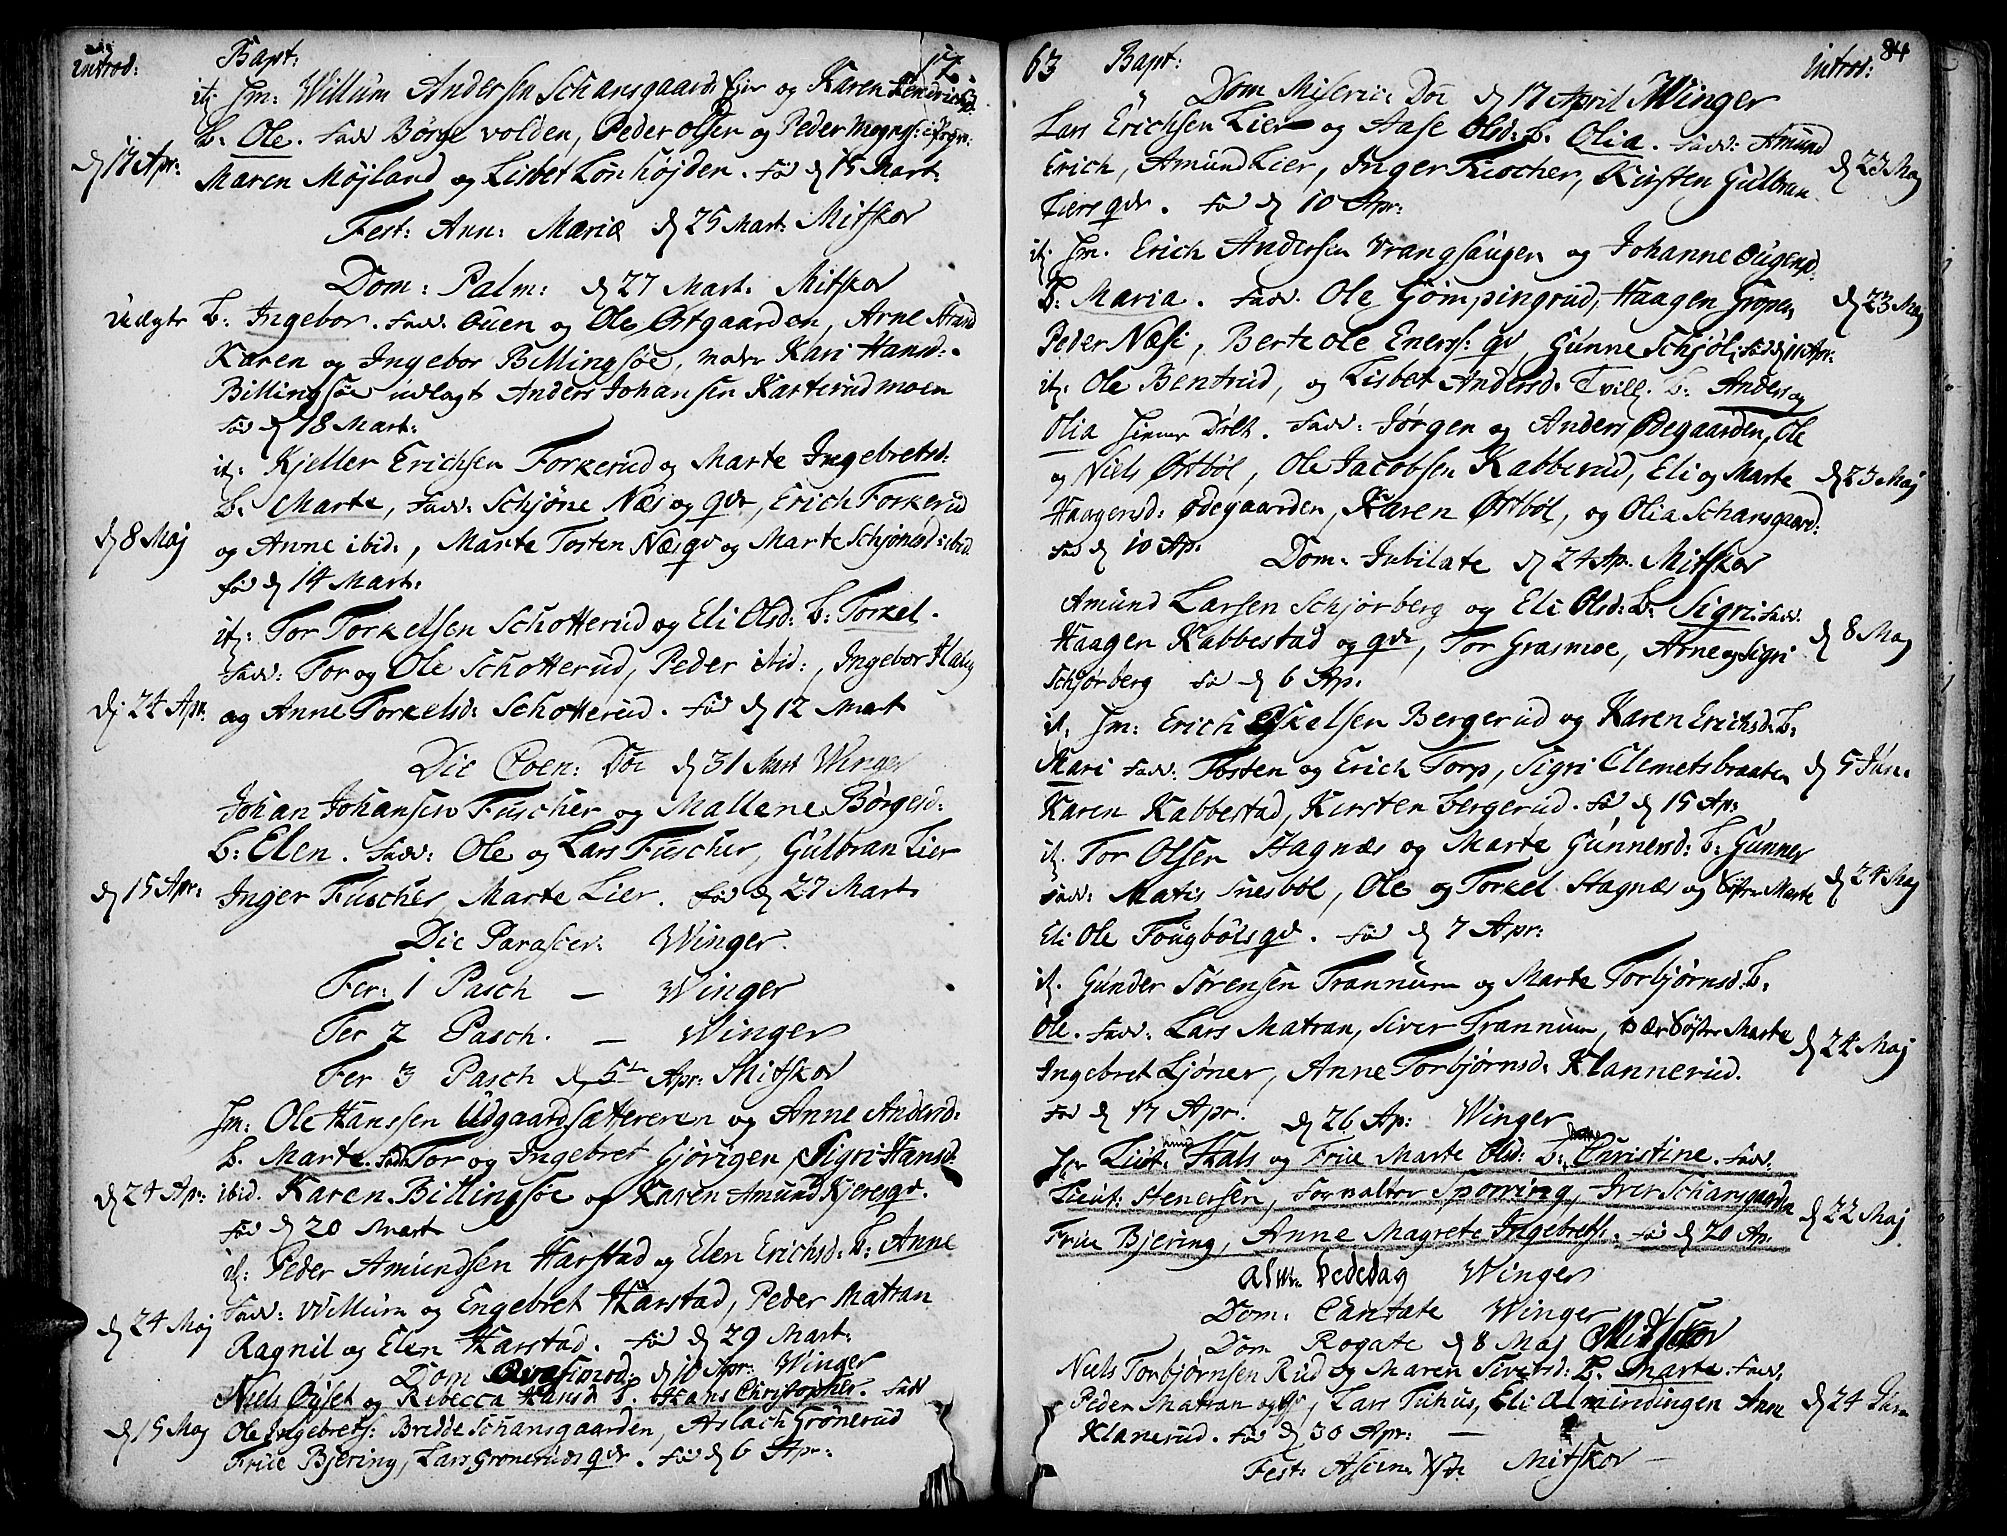 introd: Bapt: 17
it: Jm: Willum Andersen Schansgaard Eier og Karen Hendrichsd.
b: Ole. Fadd Børge volden, Peder olsen og Peder Mogns:
d 17 Apr: Maren Møjland og Lisbet Lørhøjden. Fød d 15 Mart:
Fest: Ann: Mariæ d 25 Mart: Mitskov
Dom: Palm: d 27 Mart: Mitskov
Uægte b: Ingebor. Fadd: Ouen og Ole Østgaarden, Arne Strand
Karen og Ingebor Billingsøe, moder Kari Hansd:
Billingsøe udlagt Anders Johansen Karterud moen
Fød d 18 Mart:
it: Kjeller Erichsen Forkerud og Marte Ingebretsd:
b: Marte, Fadd: Schjøne Næs og qde, Erich Forkerud
d 8 Maj og Anne ibid:, Marte Tosten Næs qde og Marte Schjønesd: ibid.
Fød d 14 Mart:
it: Tor Torkelsen Schotterud og Eli Olsd: b: Torkel.
Fadd: Tor og Ole Schotterud, Peder ibid:, Ingebor Haug
d: 24 Apr. og Anne Torkelsd: Schotterud. Fød d 12 Mart
Die Coen: Do: d 31 Mart Winger
Johan Johansen Fuscher og Mallene Børgesd:
b: Elen. Fadd: Ole og Lars Fuscher, Gulbran Lier
d 15 Apr: Inger Fuscher Marte Lier. Fød d 27 Mart
Die Parascev: Winger.
Fer: 1 Pasch — Winger
Fer 2 Pasch. — Winger
Fer 3 Pasch d 5te Apr: Mitskov
Jm: Ole Hanssen Udgaardsættereren og Anne Andersd:
b. Marte. Fadd: Tor og Ingebret Gjørigen, Sigri Hansd
d 24 Ap: ibid. Karen Billingsøe og Karen Amund Kjeres qde.
Fød d 20 Mart
it: Peder Amundsen Harstad og Elen Erichsd: b: Anne
Fadd: Willum og Engebret Harstad, Peder Matran
d 24 Maj Ragnil og Elen Harstad. Fød d 29 Mart:
Dom Quasimod: d 10 Apr: Winger
Niels Øyset og Rebecca Hansd b. Hans Christopher. Fadd
d 15 Maj Ole Ingebrets: Bredde Schansgaarden, Aslach Grønerud
Frue Bjering, Lars Gronerudsqde. Fød d 6 Apr:
63 Bapt: introd: 84
Dom Miseric: Do: d 17 April Winger
Lars Erichsen Lier og Aase Olsd: b. Olia. Fadd: Amund
Erich, Amund Lier, Inger Fuscher, Kirsten Gulbran d 23 Maj
Liers qde. Fø d 10 Apr:
it. Jm. Erich Andersen Vranghaugen og Johanne Ougensd.
b: Maria. Fadd. Ole Gømpingrud, Haagen Gropen d 23 Maj
Peder Næsi, Berte Ole Eners: qd, Gunne Schjøl, Fød d 11 Apr:
it: Ole Bentrud, og Lisbet Andersd: Tvill. b: Anders og
Olia hieme Døbt. Fadd: Jørgen og Anders Ødegaarden, Ole
og Niels Østbøl, Ole Jacobsen Kabberud, Eli og Marte d 23 Maj
Haagensd: Ødegaarden, Karen Østbøl, og Olia Schansgaard:
Fød d 10 Ap.
Dom: Jubilate d 24 Ap. Mitskov
Amund Larsen Schjørberg og Eli Olsd: b: Sigri. Fadd.
Haagen Kabbestad og qde, Tor Grasmoe, Arne og Sigri d 8 Maj
Schjørberg Fø d 6 Ap.
it. Jm: Erich Eskelsen Bergerud og Karen Erichsd: b.
Mari Fadd: Tosten og Erich Torp, Sigri Clemetsbraaten d 5 Jun.
Karen Kabbestad, Kirsten Bergerud. Fø d 15 Ap:
it. Tor Olsen Stagnæs og Marte Gunnersd: b: Gunner
Fadd: Matis Snesbøl, Ole og Torkel Stagnæs og Søster Marte d 24 Maj
Eli Ole Fougbøls qd. Fød d 7 Apr:
it. Gunder Sørensen Trannum og Marte Torbjørnsd: b.
Ole. Fadd: Lars Matran, Siver Trannum, Søster Marte
Ingebret Ljøner, Anne Torbjørnsd: Klannerud. d 24 Maj
Fød d 17 Apr:
d 26 Ap: Winger
Lieut: Hals og Frue Marte Olsd: b: Christine. Fadd:
Lieut: Stenersen, Forvalter Sporring, Iver Schansgaarden d 22 Maj
Frue Bjering, Anne Magrete Ingebrets. Fød d 20 Ap:
Alm. Bededag Winger
Dom: Cantate Winger
Dom Rogate d 8 Maj Mitskov
Niels Torbjørnsen Rud og Maren Sivertsd: b. Marte. Fadd.
Peder Matran og qd, Lars Tuhus, Eli Almindingen Anne d 24 Jun
Klanerud. Fød d 30 Apr: —
Fest: Ascen: Mitskov —